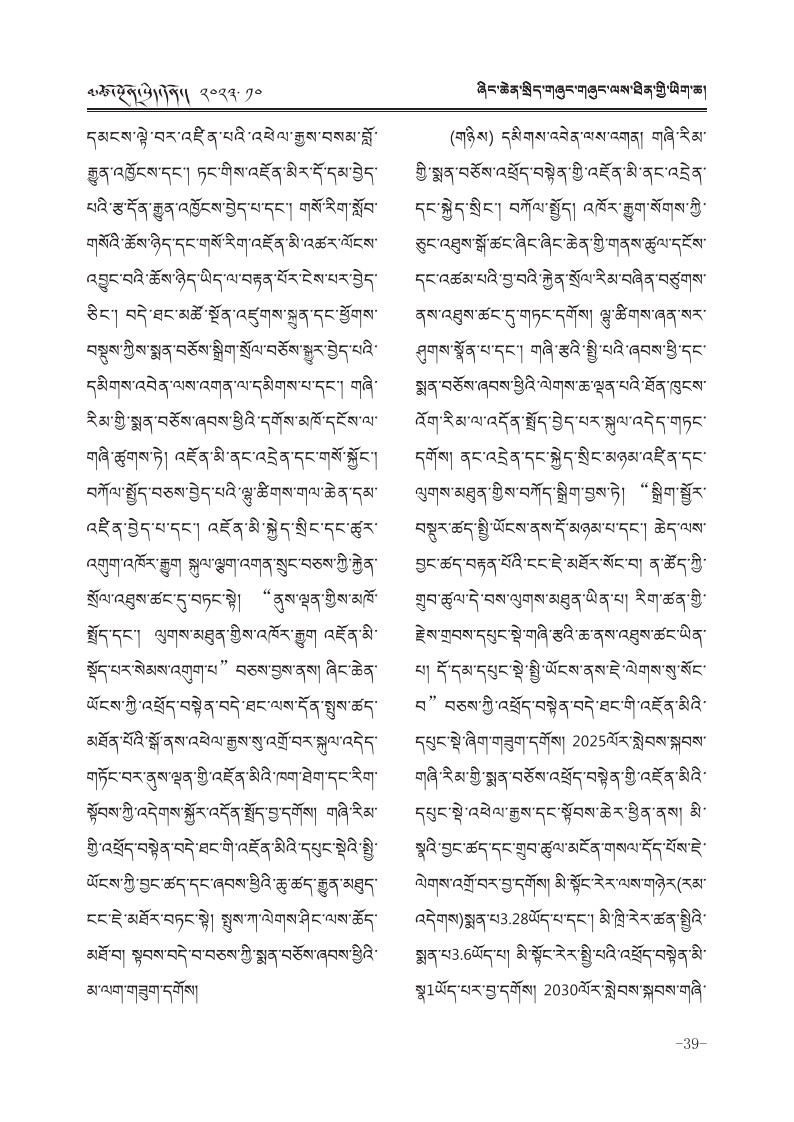 མཚོ་སྔོན་སྲིད་གཞུང་། ༢༠༢༣·༡༠
ཞིང་ཆེན་སྲིད་གཞུང་གཞུང་ལས་ཐིན་གྱི་ཡིག་ཆ།
དམངས་ལྟེ་བར་འཛིན་པའི་འཕེལ་རྒྱས་བསམ་བློ་
རྒྱུན་འཁྱོངས་དང་། ཏང་གིས་འཇོན་མིར་དོ་དམ་བྱེད་
པའི་རྩ་དོན་རྒྱུན་འཁྱོངས་བྱེད་པ་དང་། གསོ་རིག་སློབ་
གསོའི་ཆོས་ཉིད་དང་གསོ་རིག་འཇོན་མི་འཚར་ལོངས་
འབྱུང་བའི་ཆོས་ཉིད་ཡིད་ལ་བརྟན་པོར་ངེས་པར་བྱེད་
ཅིང་། བདེ་ཐང་མཚོ་སྔོན་འཛུགས་སྐྲུན་དང་ཕྱོགས་
བསྡུས་ཀྱིས་སྨན་བཅོས་སྒྲིག་སྲོལ་བཅོས་སྒྱུར་བྱེད་པའི་
དམིགས་འབེན་ལས་འགན་ལ་དམིགས་པ་དང་། གཞི་
རིམ་གྱི་སྨན་བཅོས་ཞབས་ཕྱིའི་དགོས་མཁོ་དངོས་ལ་
གཞི་ཚུགས་ཏེ། འཇོན་མི་ནང་འདྲེན་དང་གསོ་སྐྱོང་།
བཀོལ་སྤྱོད་བཅས་བྱེད་པའི་ལྷུ་ཚིགས་གལ་ཆེན་དམ་
འཛིན་བྱེད་པ་དང་། འཇོན་མི་སྐྱེད་སྲིང་དང་ཚུར་
འགུག་འཁོར་རྒྱུག སྐུལ་ལྕག་འགན་སྲུང་བཅས་ཀྱི་རྐྱེན་
སྲོལ་འཐུས་ཚང་དུ་བཏང་སྟེ། “ནུས་ལྡན་གྱིས་མཁོ་
སྤྲོད་དང་། ལུགས་མཐུན་གྱིས་འཁོར་རྒྱུག འཇོན་མི་
སྡོད་པར་སེམས་འགུག་པ” བཅས་བྱས་ནས། ཞིང་ཆེན་
ཡོངས་ཀྱི་འཕྲོད་བསྟེན་བདེ་ཐང་ལས་དོན་སྤུས་ཚད་
མཐོན་པོའི་སྒོ་ནས་འཕེལ་རྒྱས་སུ་འགྲོ་བར་སྐུལ་འདེད་
གཏོང་བར་ནུས་ལྡན་གྱི་འཇོན་མིའི་ཁག་ཐེག་དང་རིག་
སྟོབས་ཀྱི་འདེགས་སྐྱོར་འདོན་སྤྲོད་བྱ་དགོས། གཞི་རིམ་
གྱི་འཕྲོད་བསྟེན་བདེ་ཐང་གི་འཇོན་མིའི་དཔུང་སྡེའི་སྤྱི་
ཡོངས་ཀྱི་བྱང་ཚད་དང་ཞབས་ཕྱིའི་ཆུ་ཚད་རྒྱུན་མཐུད་
ངང་ཇེ་མཐོར་བཏང་སྟེ། སྤུས་ཀ་ལེགས་ཤིང་ལས་ཆོད་
མཐོ་བ། སྟབས་བདེ་བ་བཅས་ཀྱི་སྨན་བཅོས་ཞབས་ཕྱིའི་
མ་ལག་གཟུག་དགོས།
(གཉིས) དམིགས་འབེན་ལས་འགན། གཞི་རིམ་
གྱི་སྨན་བཅོས་འཕྲོད་བསྟེན་གྱི་འཇོན་མི་ནང་འདྲེན་
དང་སྐྱེད་སྲིང་། བཀོལ་སྤྱོད། འཁོར་རྒྱུག་སོགས་ཀྱི་
ཅུང་འཐུས་སྒོ་ཚང་ཞིང་ཞིང་ཆེན་གྱི་གནས་ཚུལ་དངོས་
དང་འཚམ་པའི་བྱ་བའི་རྐྱེན་སྲོལ་རིམ་བཞིན་བཙུགས་
ནས་འཐུས་ཚང་དུ་གཏང་དགོས། ལྷུ་ཚིགས་ཞན་སར་
ཤུགས་སྣོན་པ་དང་། གཞི་རྩའི་སྤྱི་པའི་ཞབས་ཕྱི་དང་
སྨན་བཅོས་ཞབས་ཕྱིའི་ལེགས་ཆ་ལྡན་པའི་ཐོན་ཁུངས་
འོག་རིམ་ལ་འདོན་སྤྲོད་བྱེད་པར་སྐུལ་འདེད་གཏང་
དགོས། ནང་འདྲེན་དང་སྐྱེད་སྲིང་མཉམ་འཛིན་དང་
ལུགས་མཐུན་གྱིས་བཀོད་སྒྲིག་བྱས་ཏེ། “སྒྲིག་སྦྱོར་
བསྡུར་ཚད་སྤྱི་ཡོངས་ནས་དོ་མཉམ་པ་དང་། ཆེད་ལས་
བྱང་ཚད་བརྟན་པོའི་ངང་ཇེ་མཐོར་སོང་བ། ན་ཚོད་ཀྱི་
གྲུབ་ཚུལ་དེ་བས་ལུགས་མཐུན་ཡིན་པ། རིག་ཚན་གྱི་
རྗེས་གྲབས་དཔུང་སྡེ་གཞི་རྩའི་ཆ་ནས་འཐུས་ཚང་ཡིན་
པ། དོ་དམ་དཔུང་སྡེ་སྤྱི་ཡོངས་ནས་ཇེ་ལེགས་སུ་སོང་
བ” བཅས་ཀྱི་འཕྲོད་བསྟེན་བདེ་ཐང་གི་འཇོན་མིའི་
དཔུང་སྡེ་ཞིག་གཟུག་དགོས། 2025ལོར་སླེབས་སྐབས་
གཞི་རིམ་གྱི་སྨན་བཅོས་འཕྲོད་བསྟེན་གྱི་འཇོན་མིའི་
དཔུང་སྡེ་འཕེལ་རྒྱས་དང་སྟོབས་ཆེར་ཕྱིན་ནས། མི་
སྣའི་བྱང་ཚད་དང་གྲུབ་ཚུལ་མངོན་གསལ་དོད་པོས་ཇེ་
ལེགས་འགྲོ་བར་བྱ་དགོས། མི་སྟོང་རེར་ལས་གཉེར(རམ་
འདེགས)སྨན་པ3.28ཡོད་པ་དང་། མི་ཁྲི་རེར་ཚན་སྤྱིའི་
སྨན་པ3.6ཡོད་པ། མི་སྟོང་རེར་སྤྱི་པའི་འཕྲོད་བསྟེན་མི་
སྣ1ཡོད་པར་བྱ་དགོས། 2030ལོར་སླེབས་སྐབས་གཞི་
-39-